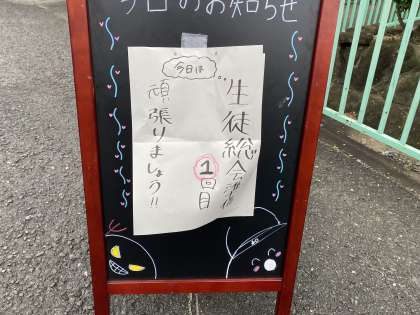 今日のお知らせ
今日は
生徒総会!!!
1回目
頑張りましょう!!